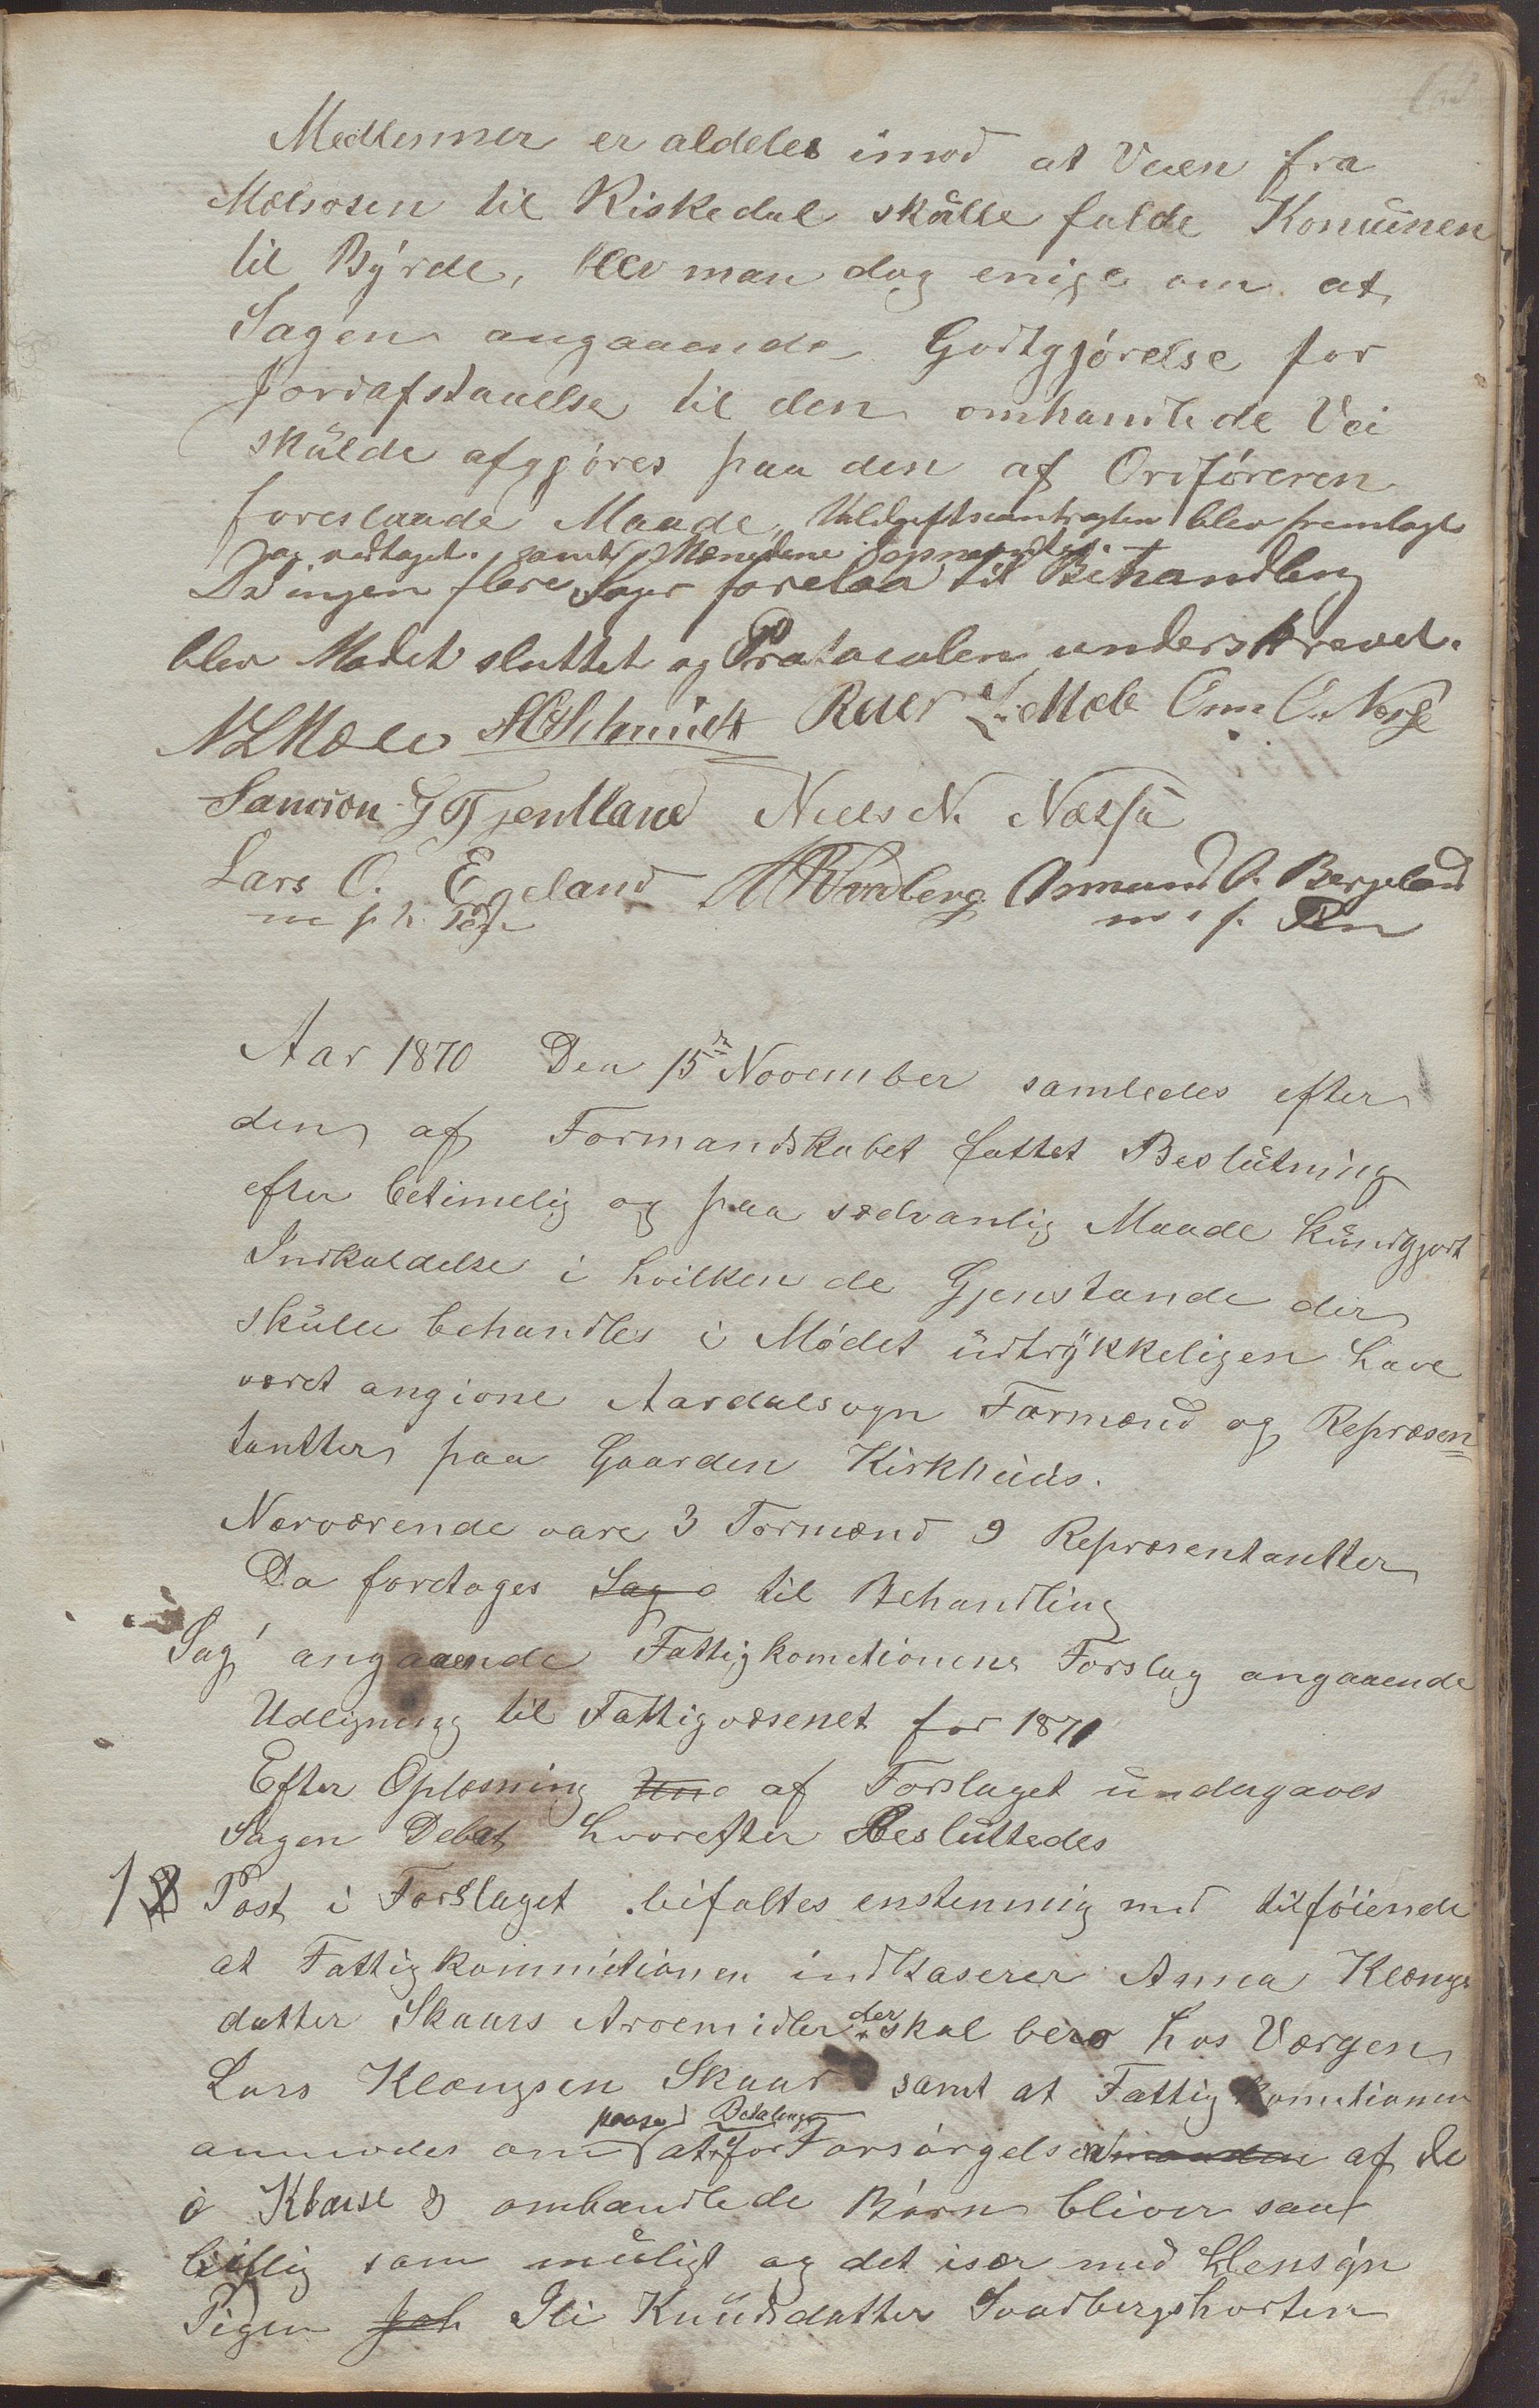 Medlemmer er aldeles imod at Veien fra
Mælsosen til Riskedal skulle falde Komunen
til Byrde, blev man dog enige om at
Sagen angaaende Godtgjørelse for
Jordafstaaelse til den omhandlede Vei
skulde afgjøres paa den af Ordføreren
foreslaaede Maade, Voldgiftscontragten blev fremlagt
og vedtaget. samt Mændene opnævntes.
Da ingen flere Sager forelaa til Behandling
blev Mødet sluttet og Protocolen underskrevet.
N L Mæle Schmidt Reier L. Mæle Omn O. Næsse
Samson G Tjentland Niels N. Næssa
Lars O. Egeland Svadberg Osmund O. Bergeland
m p h. Pen m. p. Pen
Aar 1870 Den 15de November samledes efter
den af Formandskabet fattet Beslutning
efter betimelig og paa sædvanlig Maade kundgjort
Indkaldelse i hvilken de Gjenstande der
skulle behandles i Mødet udtrykkeligen have
været angivne Aardalsogn Formænd og Repræsen=
tantter paa Gaarden Kirkhuus.
Nærværende vare 3 Formænd 9 Repræsentantter
Da foretoges Sag til Behandling
Sag 1 angaaende Fattigkometionens Forslag angaaende
Udligning til Fattigvæsenet for 1871
Efter Oplæsning af Forslaget undergaves
Sagen Debat hvorefter Besluttedes
1 Post i Forslaget bifaltes enstemmig med tilføiende
at Fattigkommitionen indkaserer Anna Klængs
datter Skaars Arvemidler der skal bero hos Værgen
Lars Klængsen Skaar samt at Fattigkomitionen
paase Betalingen
anmodes om at for Forsørgelsen af de
i Klause 3 ombandlede Børn bliver saa
billig som muligt og det især med Hensyn
Pigen Joh Eli Knudsdatter Svadbergshorten